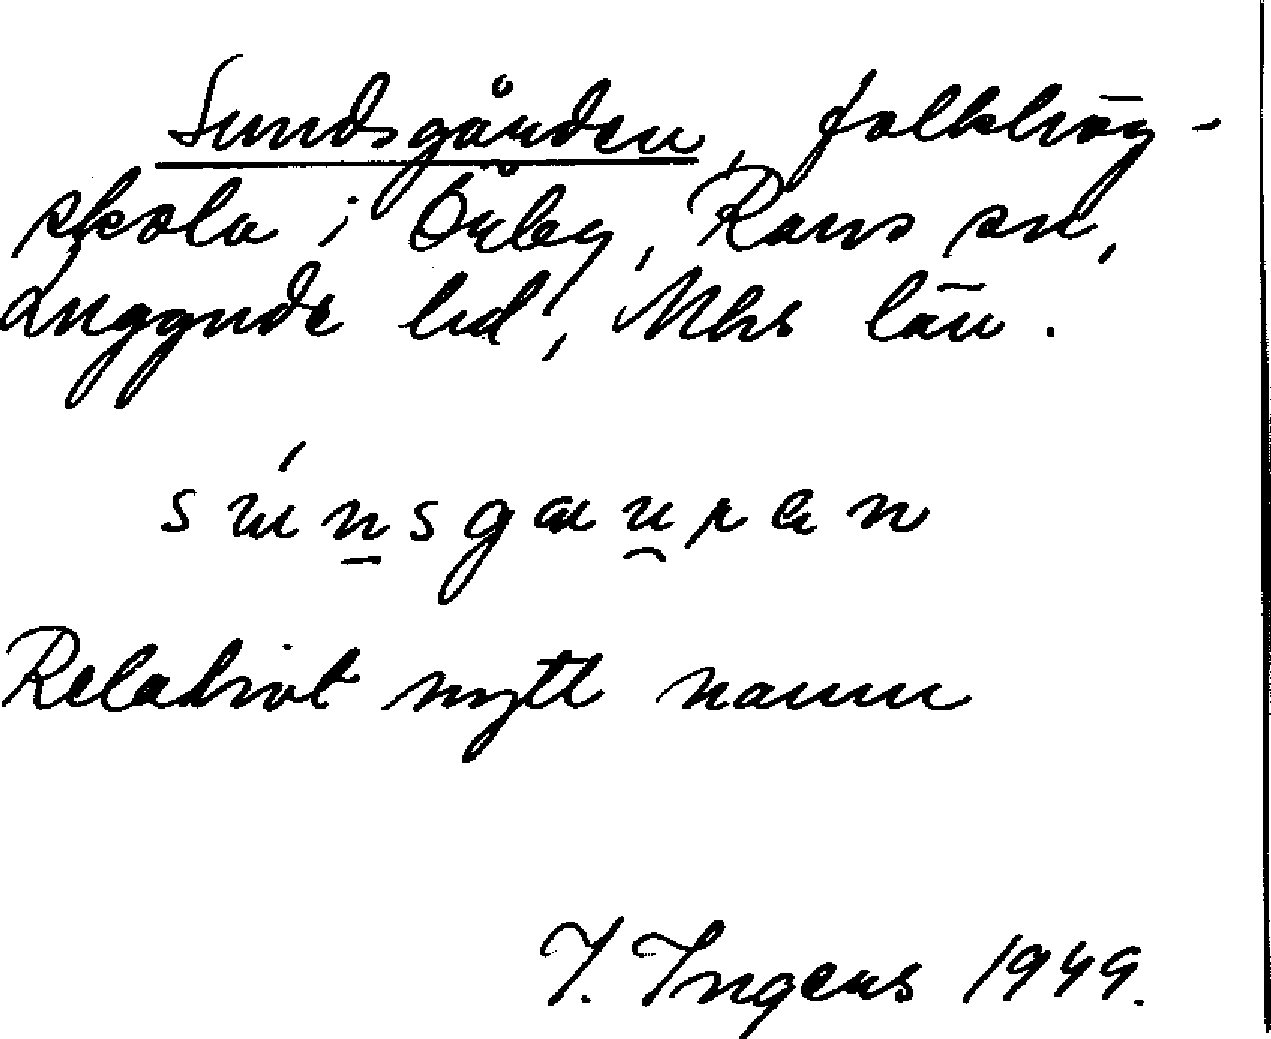 Sundsgården, folkhög-
skola i Örby, Raus sn,
Luggude hd, Mhs län.
Relativt nytt namn
I. Ingers 1949.